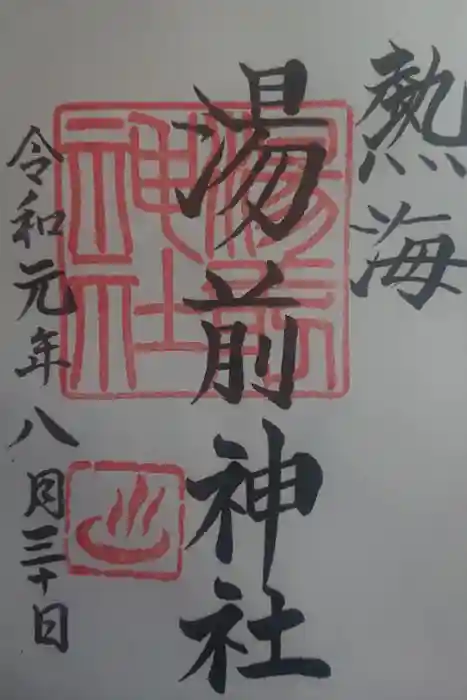 熱海
湯前神社
湯前神社
令和元年八月三十日